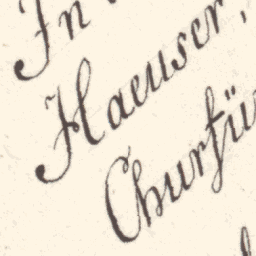 In
Haeuser,
Churfü